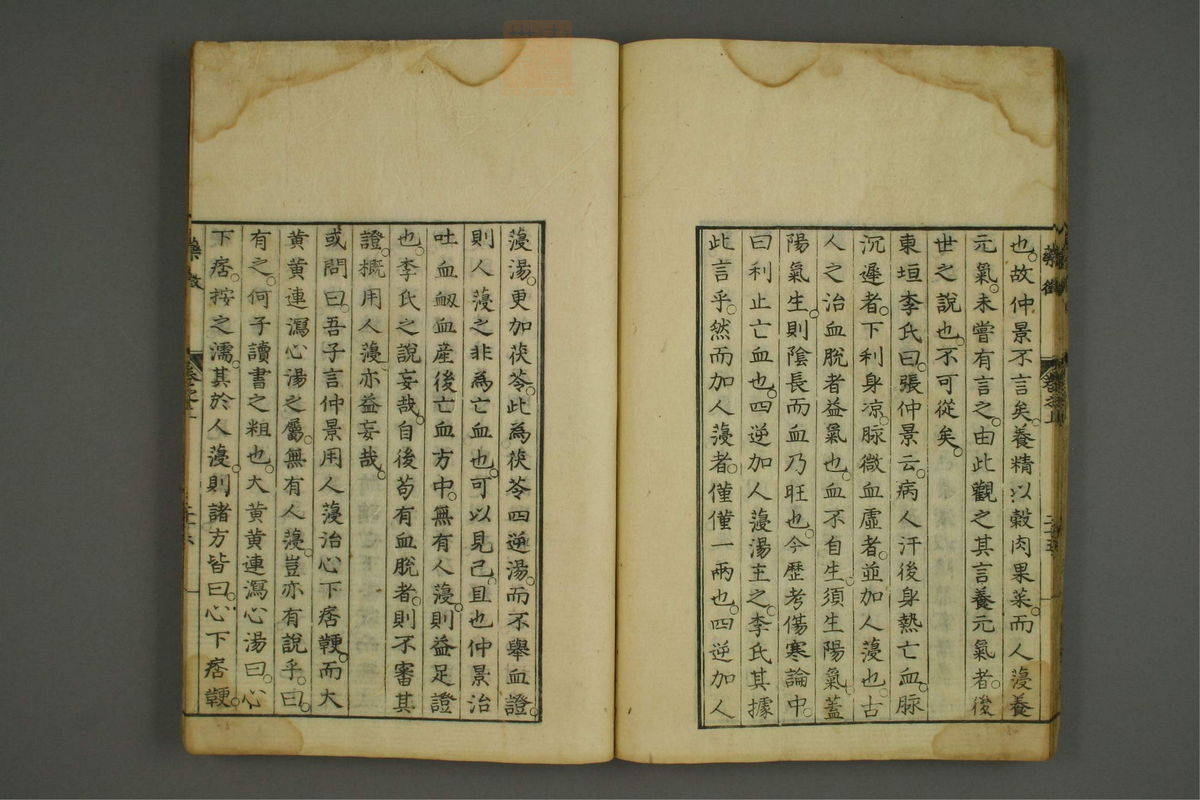 也。故仲景不言矣。養精以穀肉果菜。而人蓡養
元氣。未嘗有言之。由此觀之。其言養元氣者。後
世之說也。不可從矣。
東垣李氏曰。張仲景云。病人汗後身熱亡血。脈
沉遲者。下利身凉。脈微血虛者。並加人蓡也。古
人之治血脫者益氣也。血不自生。須生陽氣。蓋
陽氣生。則陰長而血乃旺也。今歷考傷寒論中。
曰利止亡血也。四逆加人蓡湯主之。李氏其據
此言乎。然而加人蓡者。僅僅一兩也。四逆加人
蓡湯。更加茯苓。此為茯苓四逆湯。而不舉血證。
則人蓡之非為亡血也。可以見已。且也仲景治
吐血衂血産後亡血方中。無有人蓡。則益足證
也。李氏之說妄哉。自後苟有血脫者。則不審其
證。概用人蓡。亦益妄哉。
或問曰。吾子言仲景用人蓡治心下痞鞕。而大
黄黄連瀉心湯之屬。無有人蓡。豈亦有說乎。曰。
有之。何子讀書之粗也。大黄黄連瀉心湯曰。心
下痞。按之濡。其於人蓡。則諸方皆曰。心下痞鞕。